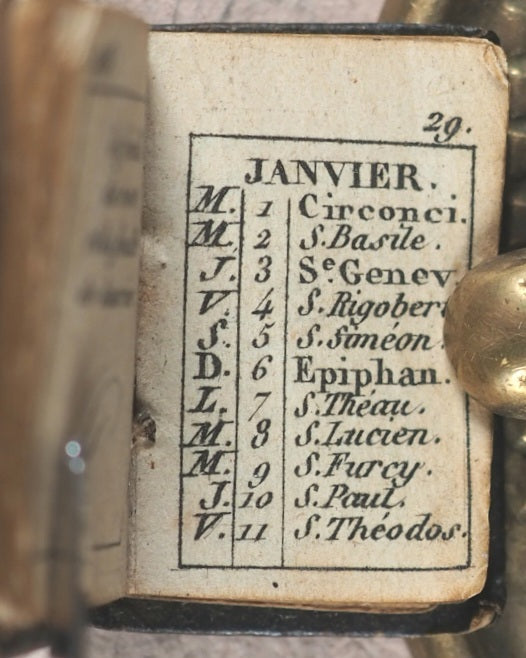 29.
JANVIER.
M. 1 Circonci.
M. 2 S. Basile.
J. 3 Sᵉ. Genev
V. 4 S. Rigober
S. 5 S. Siméon.
D. 6 Epiphan.
L. 7 S. Théau.
M. 8 S. Lucien.
M. 9 S. Furcy.
J. 10 S. Paul.
V. 11 S. Théodos.